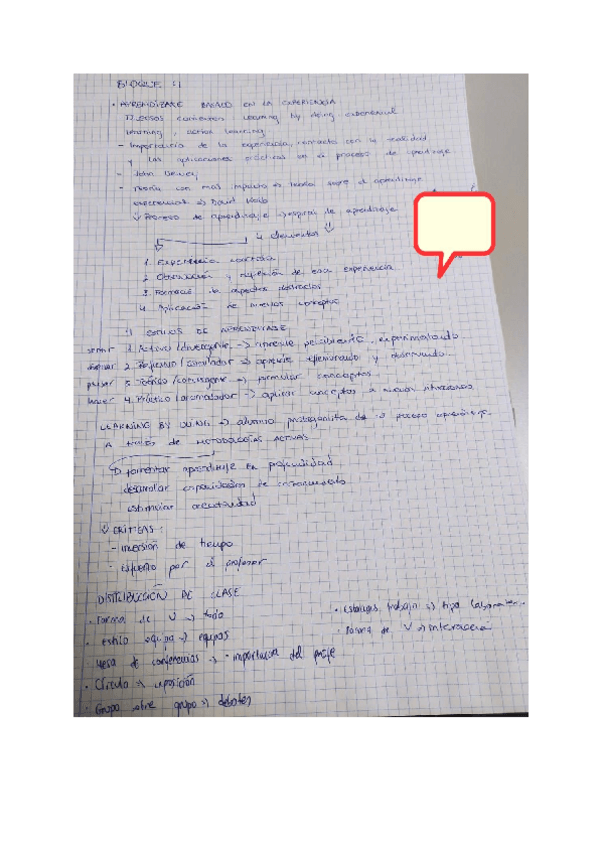 BLOQUE 4
· APRENDIZAJE BASADO EN LA EXPERIENCIA
Diversas corrientes learning by doing, experiential
learning, action learning
- Importancia de la experiencia, contacto con la realidad
y las aplicaciones prácticas en el proceso de aprendizaje
- John Dewey
- Teoría con más impacto → teoría sobre el aprendizaje
experiencial → David Kolb
↓ Proceso de aprendizaje → espiral de aprendizaje
4 elementos
1. Experiencia concreta
2. Observación y reflexión de esa experiencia
3. Formación de aspectos abstractos
4. Aplicación de nuevos conceptos
4 ESTILOS DE APRENDIZAJE
sentir 1. Activo/divergente → aprende experimentando
2. Reflexivo/asimilador → aprende y observando
pensar 3. Teórico/convergente → formular conceptos
hacer 4. Práctico/acomodador → aplicar conceptos a nuevas situaciones
LEARNING BY DOING → alumno protagonista de proceso aprendizaje
A TRAVÉS DE METODOLOGÍAS ACTIVAS
fomentar aprendizaje en profundidad
desarrollar capacidades de
estimular creatividad
↓ CRÍTICAS:
- inversión de tiempo
- esfuerzo por el profesor
DISTRIBUCIÓN DE CLASE
· Forma de U →
· estilo equipo → equipos
· Mesa de conferencias → importancia del profe
· Círculo → exposición
· Grupo sobre grupo → debates
· Estaciones trabajo → tipo
· Forma de V →